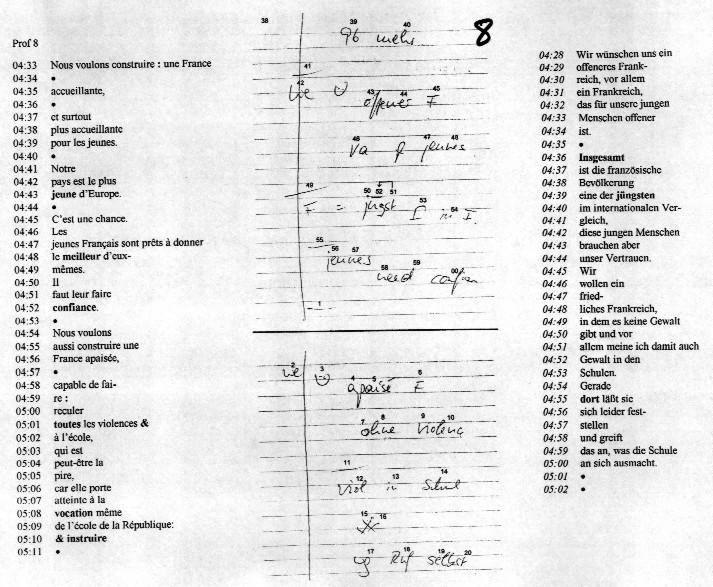 Prof 8
04:33 Nous voulons construire : une France
04:34 •
04:35 accueillante,
04:36 •
04:37 et surtout
04:38 plus accueillante
04:39 pour les jeunes.
04:40 •
04:41 Notre
04:42 pays est le plus
04:43 jeune d'Europe.
04:44 •
04:45 C'est une chance.
04:46 Les
04:47 jeunes Français sont prêts à donner
04:48 le meilleur d'eux-
04:49 mêmes.
04:50 Il
04:51 faut leur faire
04:52 confiance.
04:53 •
04:54 Nous voulons
04:55 aussi construire une
04:56 France apaisée,
04:57 •
04:58 capable de fai-
04:59 re :
05:00 reculer
05:01 toutes les violences &
05:02 à l'école,
05:03 qui est
05:04 peut-être la
05:05 pire,
05:06 car elle porte
05:07 atteinte à la
05:08 vocation même
05:09 de l'école de la République:
05:10 & instruire
05:11 •
38 39 40
96 mehr 8
41
42 43 44 45
we offenes F
46 47 48
va jeunes
49 50 52 51 53 54
F = jüngst in
55 56
jeunes
58 59 00
need
1
2 3 4 5 6
we apaisé F
7 8 9 10
ohne Violenc
11
12 13 14
Viol in Schul
15 16
17 18 19 20
Ruf selbst
04:28 Wir wünschen uns ein
04:29 offeneres Frank-
04:30 reich, vor allem
04:31 ein Frankreich,
04:32 das für unsere jungen
04:33 Menschen offener
04:34 ist.
04:35 •
04:36 Insgesamt
04:37 ist die französische
04:38 Bevölkerung
04:39 eine der jüngsten
04:40 im internationalen Ver-
04:41 gleich,
04:42 diese jungen Menschen
04:43 brauchen aber
04:44 unser Vertrauen.
04:45 Wir
04:46 wollen ein
04:47 fried-
04:48 liches Frankreich,
04:49 in dem es keine Gewalt
04:50 gibt und vor
04:51 allem meine ich damit auch
04:52 Gewalt in den
04:53 Schulen.
04:54 Gerade
04:55 dort läßt sie
04:56 sich leider fest-
04:57 stellen
04:58 und greift
04:59 das an, was die Schule
05:00 an sich ausmacht.
05:01 •
05:02 •